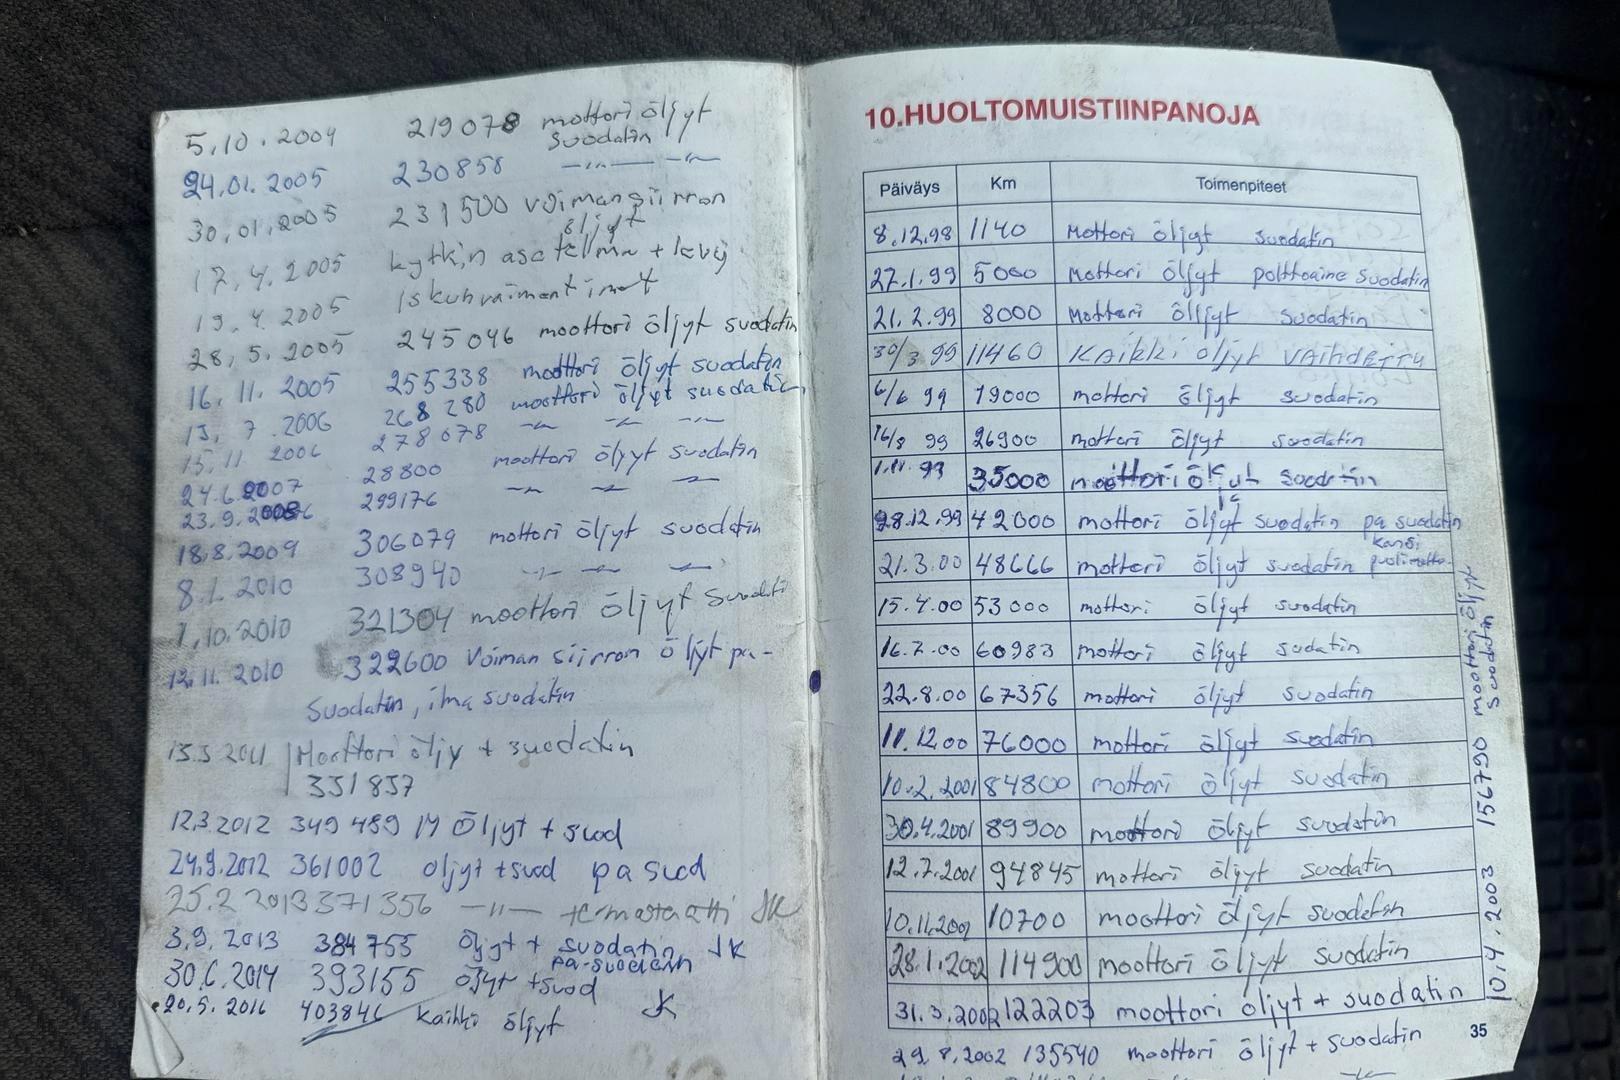 5.10.2004 219078 mottori öljyt
suodatin
24.01.2005 230858 -"- -"-
30.01.2005 231500 voimansiirron
öljyt
17.4.2005 kytkin asetelma + levy
19.4.2005 iskunvaimentimet
28.5.2005 245046 moottori öljyt suodatin
16.11.2005 255338 moottori öljyt suodatin
13.7.2006 268280 moottori öljyt suodatin
15.11.2006 278078 -"- -"- -"-
24.6.2007 28800 moottori öljyt suodatin
23.9.2008 299176 -"- -"- -"-
18.8.2009 306079 mottori öljyt suodatin
8.1.2010 308940 -"- -"- -"-
1.10.2010 321304 moottori öljyt
12.11.2010 322600 Voiman siirron öljyt pa-
Suodatin, ilma suodatin
Moottori öljy + suodatin
331837
12.3.2012 349489 öljyt + suod
24.9.2012 361002 öljyt + suod pa suod
25.2 2013 371356 -"- JK
3.9.2013 384755 öljyt + suodatin JK
pa-suodatin
30.6.2014 393155 öljyt + suod
20.5.2016 403846 kaikki öljyt JK
10.HUOLTOMUISTIINPANOJA
Päiväys Km Toimenpiteet
8.12.98 1140 Mottori öljyt suodatin
27.1.99 5000 Mottori öljyt polttoaine suodatin
21.2.99 8000 Mottori öljyt suodatin
30/3 99 11460 KAikki öljyt VAihdETTU
6/6 99 19000 mottori öljyt suodatin
16/8 99 26900 mottori öljyt suodatin
35000 moottori öljyt suodatin
28.12.99 42000 mottori öljyt suodatin pa suodatin
21.3.00 48666 mottori öljyt suodatin
15.4.00 53000 mottori öljyt suodatin
16.7.00 60983 mottori öljyt sudatin
22.8.00 67356 mottori öljyt suodatin
11.12.00 76000 mottori öljyt suodatin
10.2.2001 84800 mottori öljyt suodatin
30.4.2001 89900 mottori öljyt suodatin
12.7.2001 94845 mottori öljyt suodatin
10.11.2001 10700 moottori öljyt suodatin
28.1.2002 114900 moottori öljyt suodatin
31.3.2002 122203 moottori öljyt + suodatin
29.8.2002 135540 moottori öljyt + suodatin
10.4.2003 156790 moottori öljyt
suodatin
35